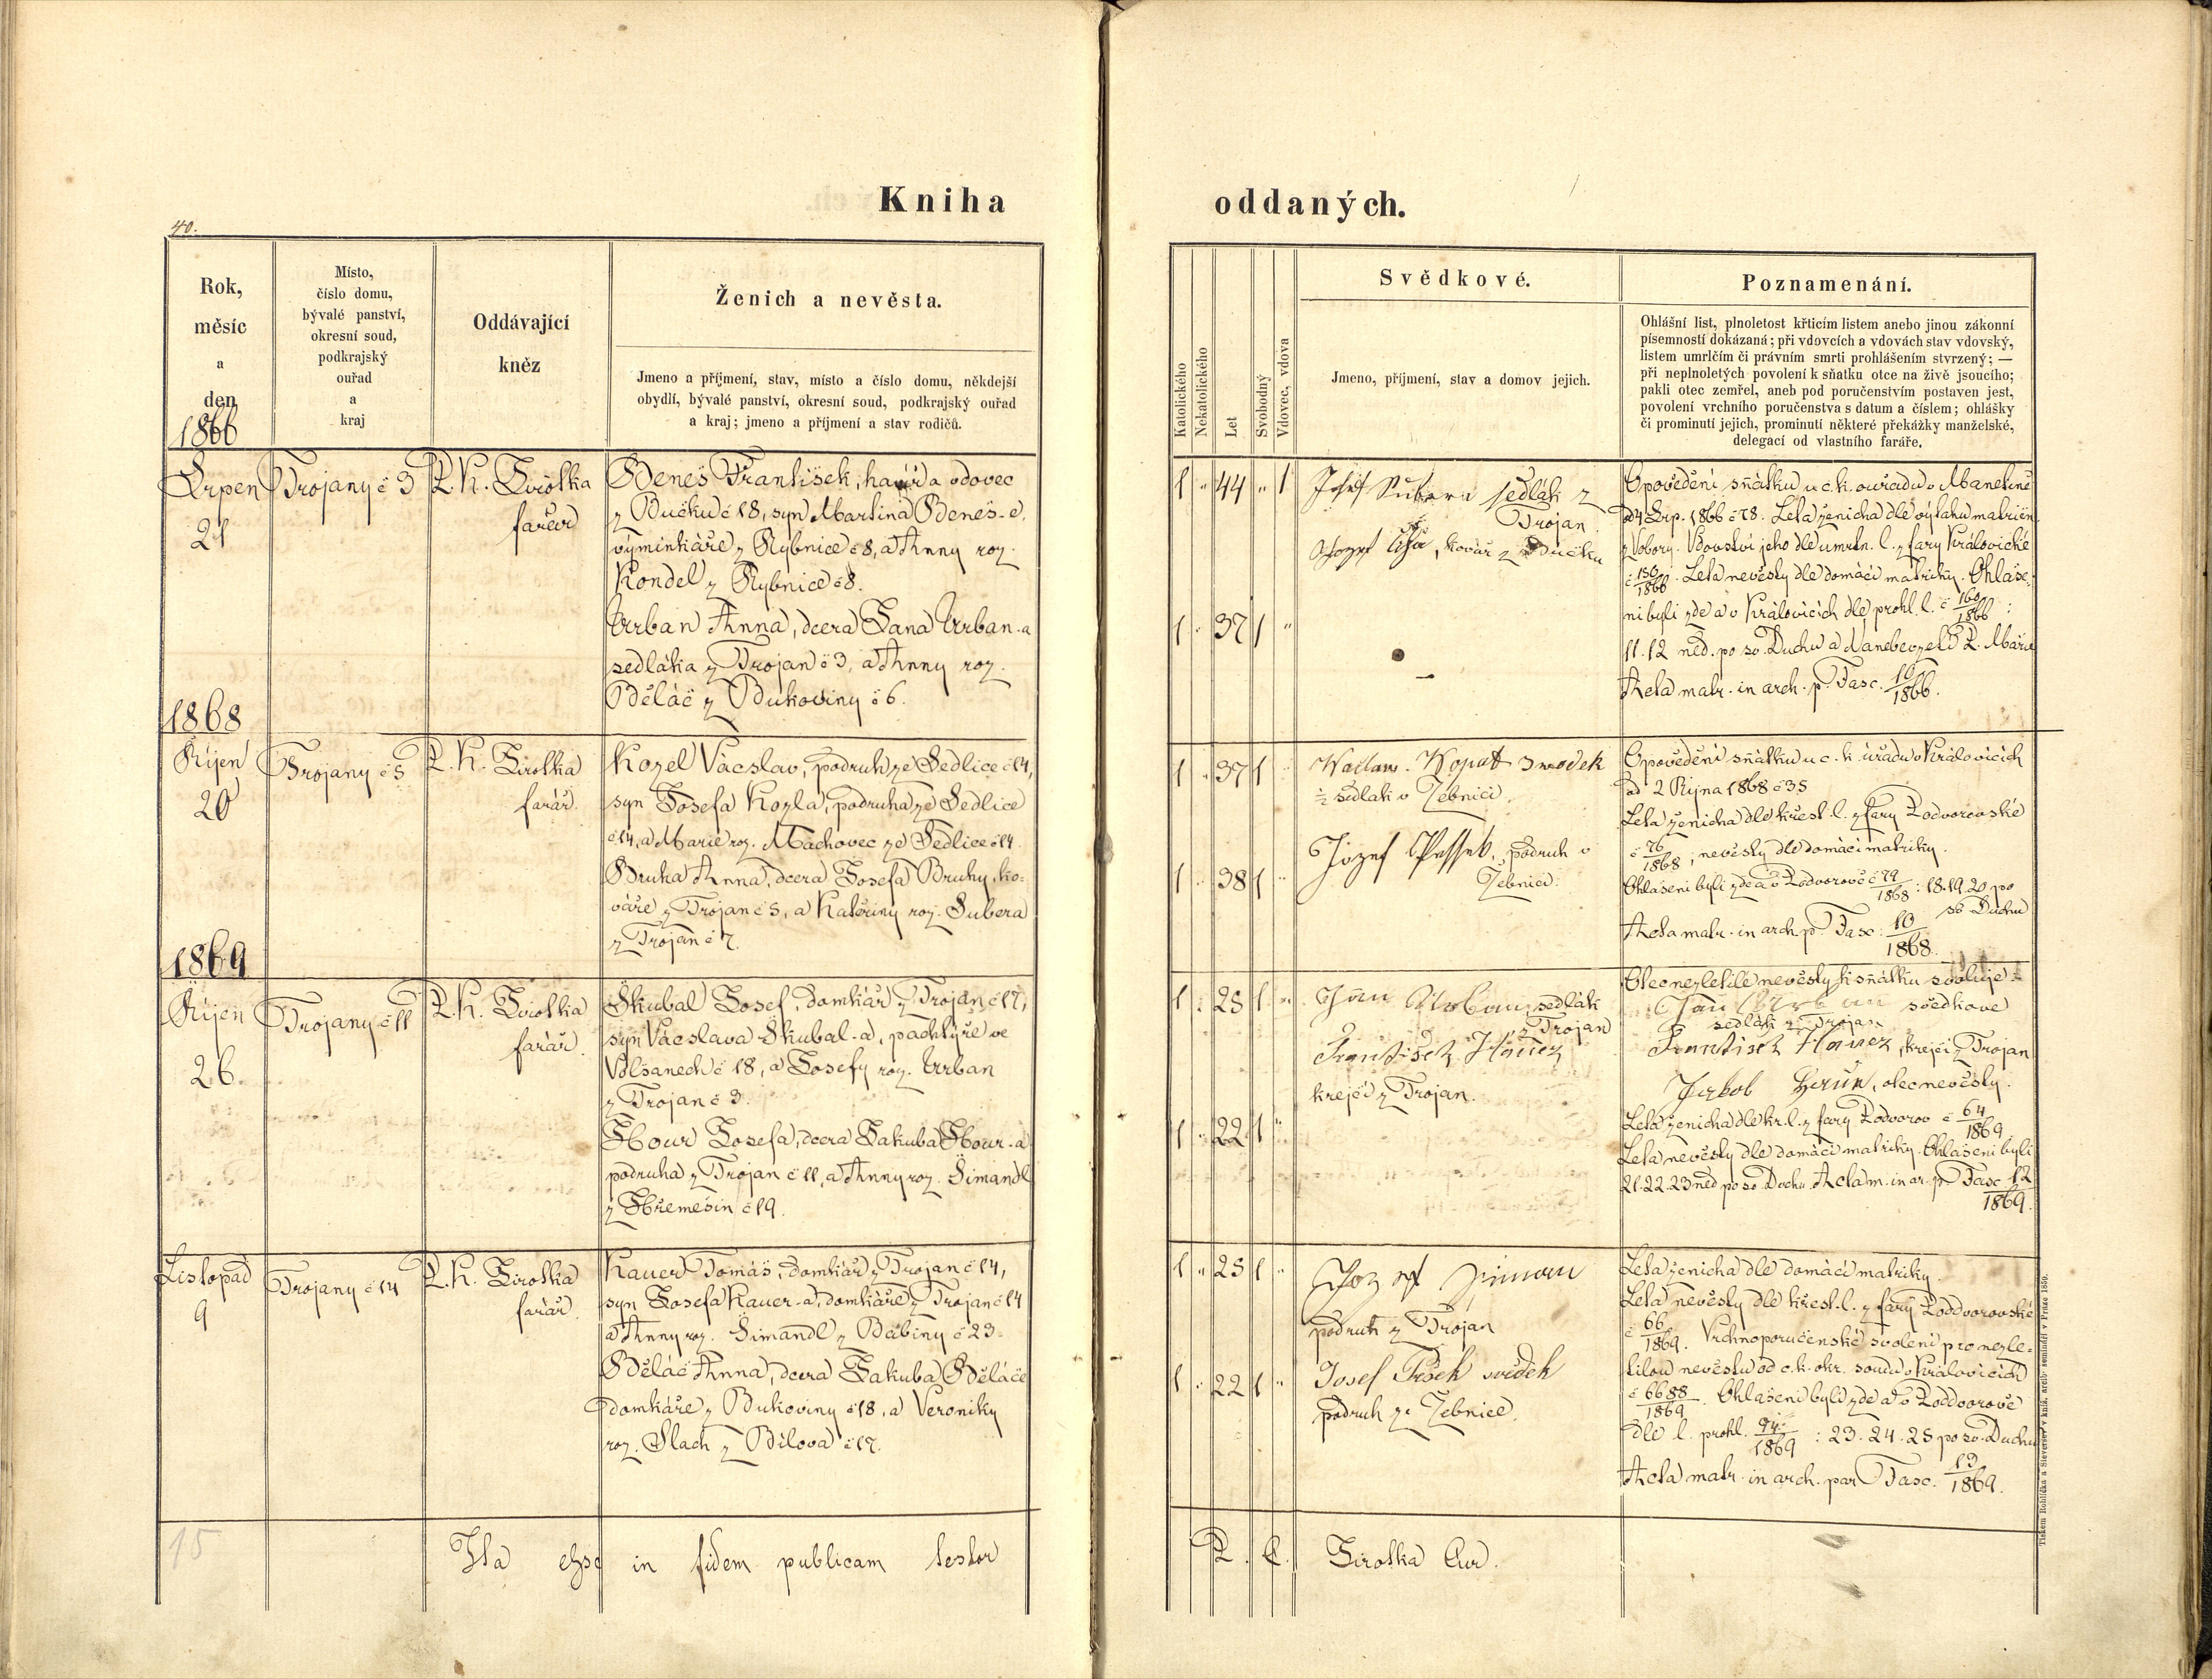 Kniha
40.
Rok,
měsíc
a
den
Místo,
číslo domu,
bývalé panství,
okresní soud,
podkrajský
ouřad
a
kraj
Oddávající
kněz
Ženich a nevěsta.
Jmeno a příjmení, stav, místo a číslo domu, někdejší
obydlí, bývalé panství, okresní soud, podkrajský ouřad
a kraj; jmeno a příjmení a stav rodičů.
1866
Srpen
21
Trojany č 3
P. K. Sirotka
farář
Beneš František, havíř a vdovec
z Bučku č 18, syn Martina Beneš-e,
výminkáře z Rybnice č 8, a Anny roz.
Kondel z Rybnice č 8.
Urban Anna, dcera Jana Urban-a
sedláka z Trojan č 3, a Anny roz.
Běláč z Bukoviny č 6.
1868
Říjen
20
Trojany č 5
P. K. Sirotka
farář.
Kozel Václav, podruh ze Sedlice č 14,
syn Josefa Kozla, podruha ze Sedlice
č 14, a Marie roz. Machovec ze Sedlice č 14.
Bruha Anna, dcera Josefa Bruhy, ko-
váře z Trojan č 5, a Kateřiny roz. Subera
z Trojan č 7.
1869
Říjen
26.
Trojany č 11
P. K. Sirotka
farář.
Škubal Josef, domkář z Trojan č 17,
syn Václava Škubal-a, pachtýře ve
Volšanech č 18, a Josefy roz. Urban
z Trojan č 3.
Josefa, dcera Jakuba
podruha z Trojan č 11, a Anny roz. Šimandl
č 19.
Listopad
9
Trojany č 14
P. K. Sirotka
farář.
Kauer Tomáš, domkář z Trojan č 14,
syn Josefa Kauer-a, domkáře z Trojan č 14
a Anny roz. Šimandl z Babiny č 23.
Běláč Anna, dcera Jakuba Běláče
domkáře z Bukoviny č 18, a Veroniky
roz. Slach z Bílova č 17.
15
Ita esse in fidem publicam testor
oddaných.
Katolického
Nekatolického
Let
Svobodný
Vdovec, vdova
Svědkové.
Jmeno, příjmení, stav a domov jejich.
Poznamenání.
Ohlášní list, plnoletost křticím listem anebo jinou zákonní
písemností dokázaná; při vdovcích a vdovách stav vdovský,
listem umrlčím či právním smrti prohlášením stvrzený; —
při neplnoletých povolení k sňatku otce na živě jsoucího;
pakli otec zemřel, aneb pod poručenstvím postaven jest,
povolení vrchního poručenstva s datum a číslem; ohlášky
či prominutí jejich, prominutí některé překážky manželské,
delegací od vlastního faráře.
1 " 44 " 1
Josef Subera sedlák z
Trojan
Jozef, kovář z Bučku
1 " 37 1 "
Opovědění sňátku u c. k. ouřadu v Manetíně
od 4 Srp. 1866 č 78. Leta ženicha dle výtahu matričn.
z Vobory. Vdovství jeho dle umrln. l. z fary Královické
č 150/1866. Leta nevěsty dle domácí matriky. Ohláše-
ni byli zde a v Královicích dle prohl. l. č 160/1866:
11. 12 ned. po sv. Duchu a Nanebevzetí P. Marie
Acta matr. in arch. p. Fasc. 10/1866.
1 " 37 1 "
Watlaw. Kopat swedek
½ sedlák v Žebnici.
Jozef, podruh v
Žebnici.
1 " 38 1 "
Opovědění sňátku u c. k. úřadu v Královicích
od 2 Října 1868 č 35
Leta ženicha dle křest. l. z fary Podvorovské
č 76/1868, nevěsty dle domácí matriky.
Ohlášeni byli zde a v Podvorově č 79/1868: 18. 19. 20 po
sv Duchu
Acta matr. in arch. p. Fasc: 10/1868.
1 " 25 1 "
Jan Urban, sedlák
z Trojan
Frantisek Hauez
krejčí z Trojan.
1 " 22 1 "
Otec nezletilé nevěsty k sňátku svoluje:
Jan Urban svědkové
sedlák z Trojan
Frantisek Hauez, krejčí z Trojan
Jakob, otec nevěsty.
Leta ženicha dle kř. l. z fary Podvorov č 64/1869
Leta nevěsty dle domácí matriky. Ohlášeni byli
21. 22. 23 ned po sv. Duchu. Acta m. in ar. p. Fasc 12/1869.
1 " 25 1 "
podruh z Trojan
Josef Pišek svědek
podruh ze Žebnice.
1 " 22 1 "
Leta ženicha dle domácí matriky.
Leta nevěsty dle křest. l. z fary Poddvorovské
č 66/1869. Vrchnoporučenské svolení pro nezle-
tilou nevěstu od c. k. okr. soudu v Královicích
č 6688/1869. Ohlášeni byli zde a v Poddvorově
dle l. prohl. 94/1869: 23. 24. 25 po sv. Duchu
Acta matr. in arch. par Fasc. 13/1869.
Sirotka Cur.